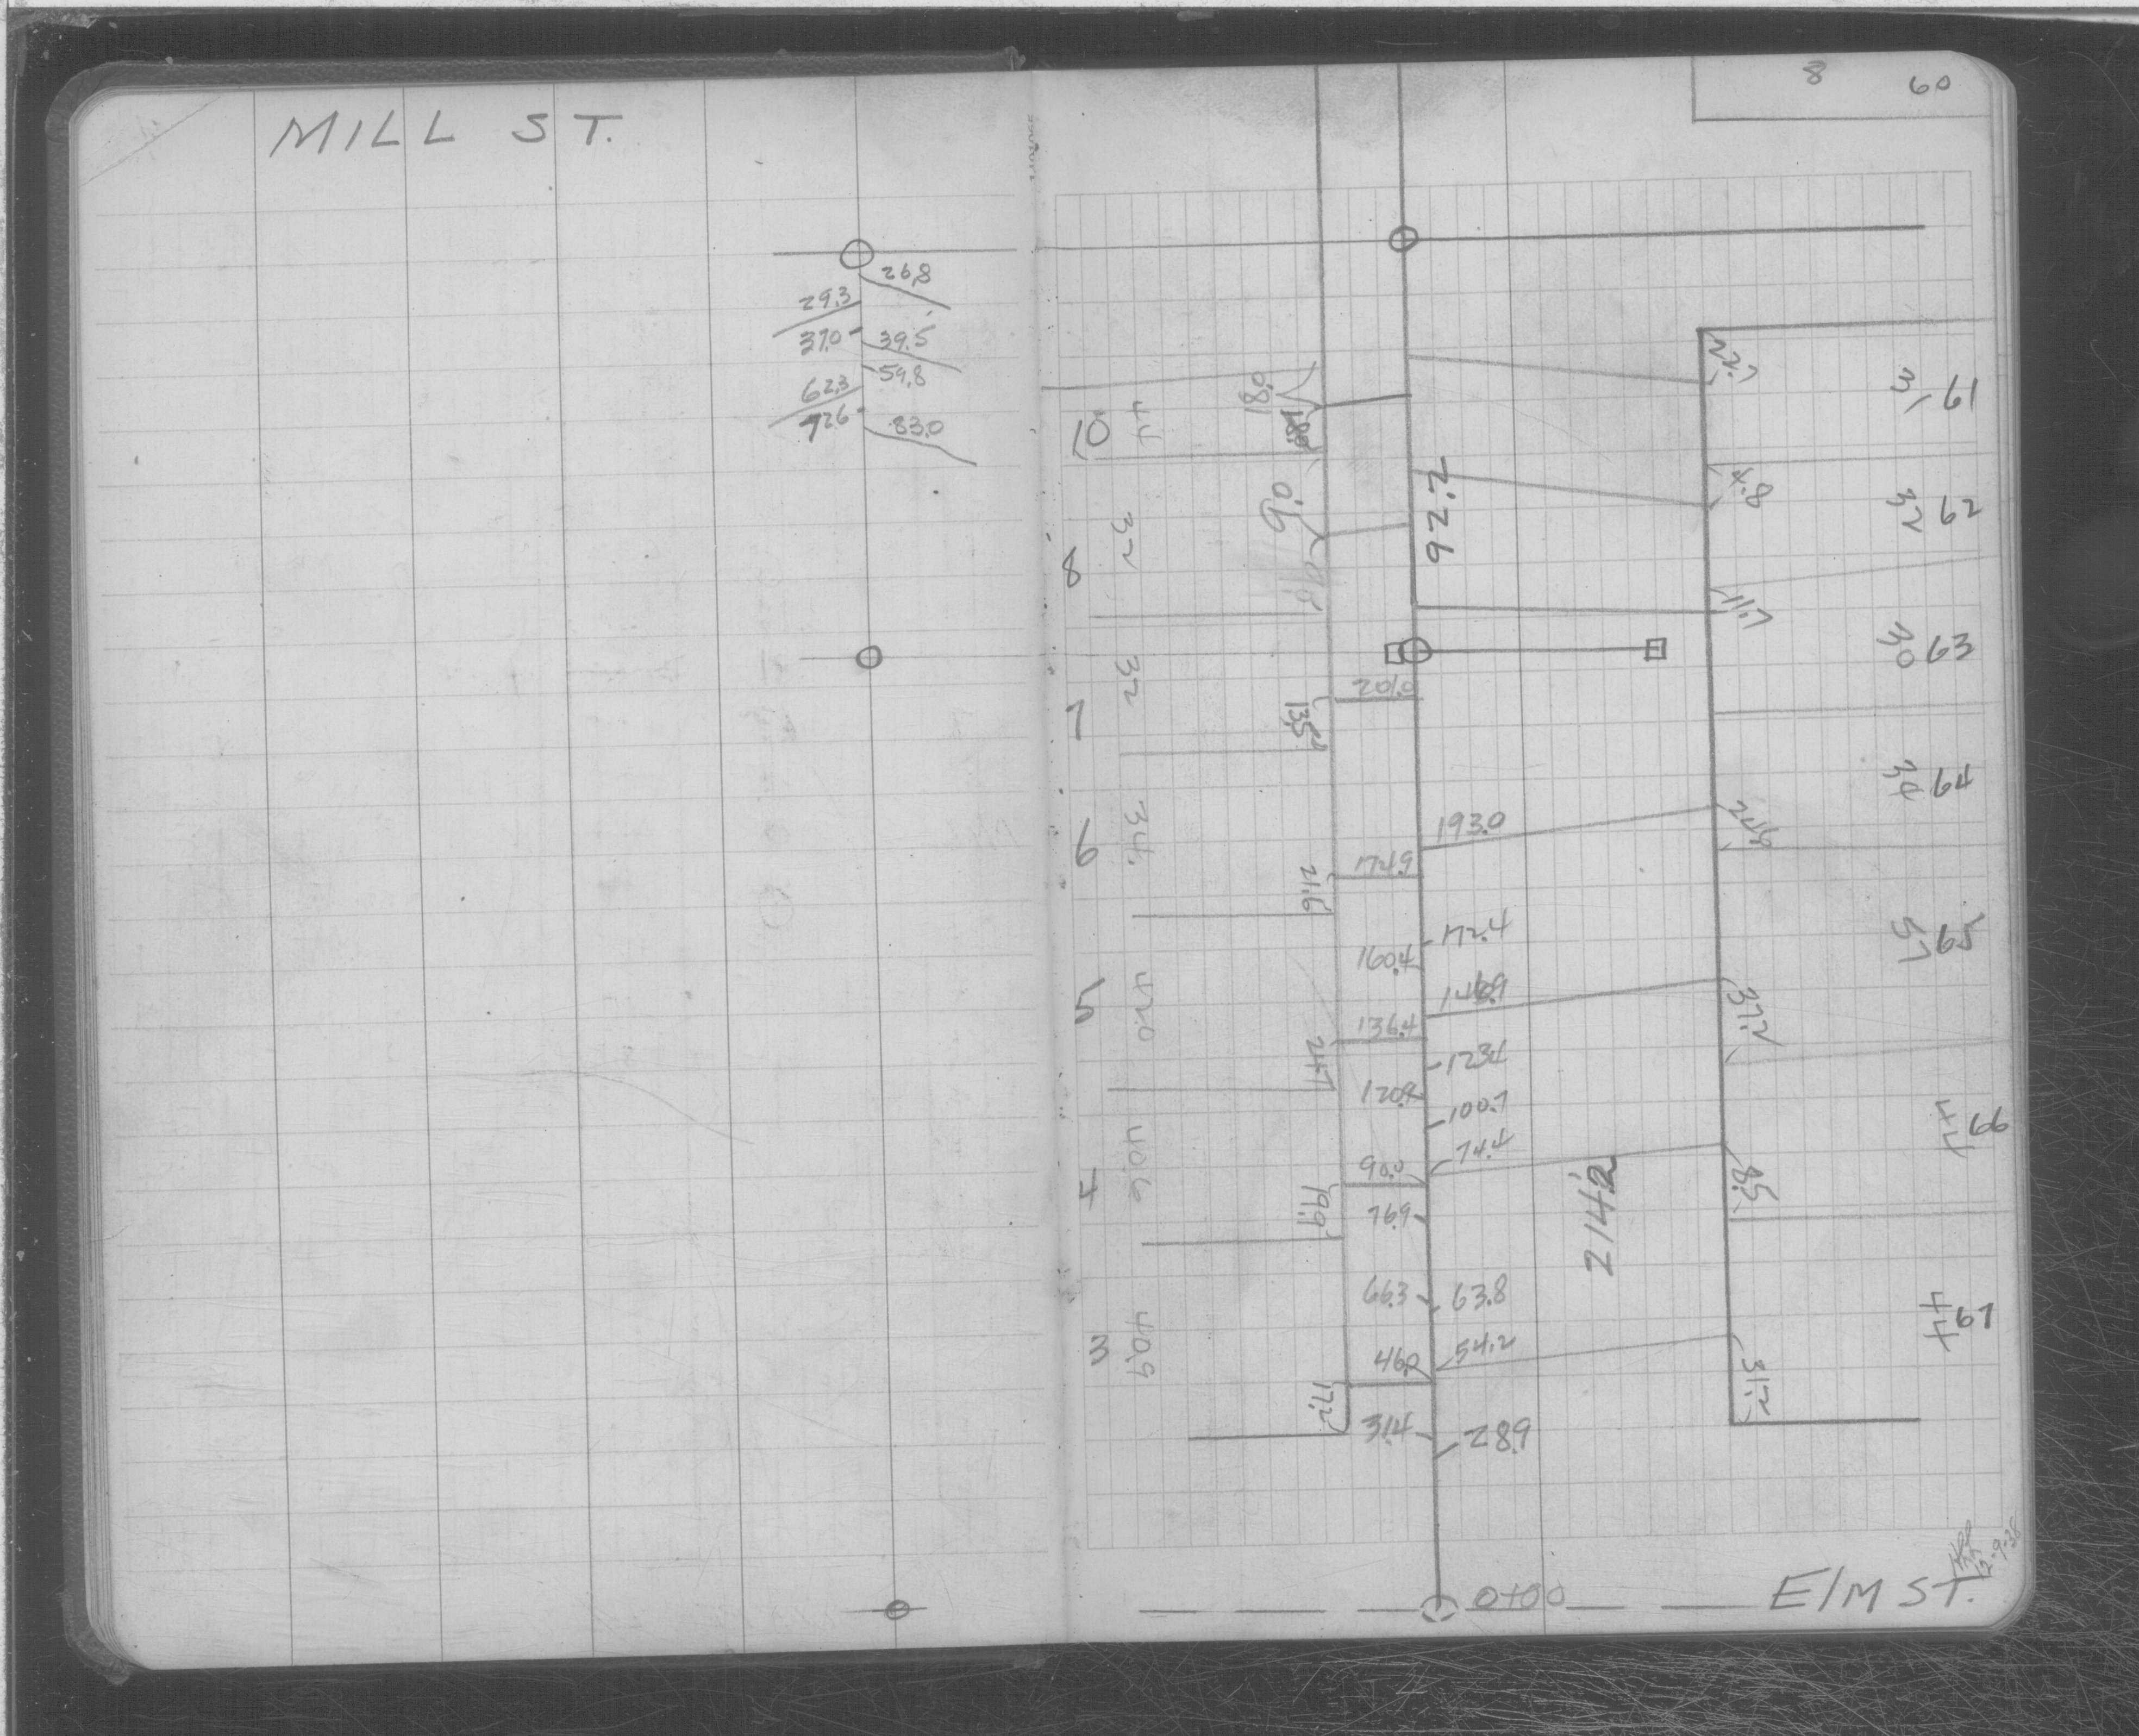 MILL ST.
26.8
29.3
37.0 39.5
59.8
62.3
72.6 83.0
8 60
22.7 31 61
10 44 18.0
4.8 32 62
8 32 9.0 92.2
11.7 30 63
7 32 13.5 201.0
34 64
6 34. 193.0
21.6 174.9
172.4 37 65
5 42.0 160.4
146.9 37.2
136.4
24.7 123.4
120.8
100.7 44 66
4 40.6 90.0 74.4
19.9 76.9 214.2
66.3 63.8 44 67
3 40.9 46.2 54.2 31.2
17.2 31.4 28.9
0+00 ELM ST.
12-9-38